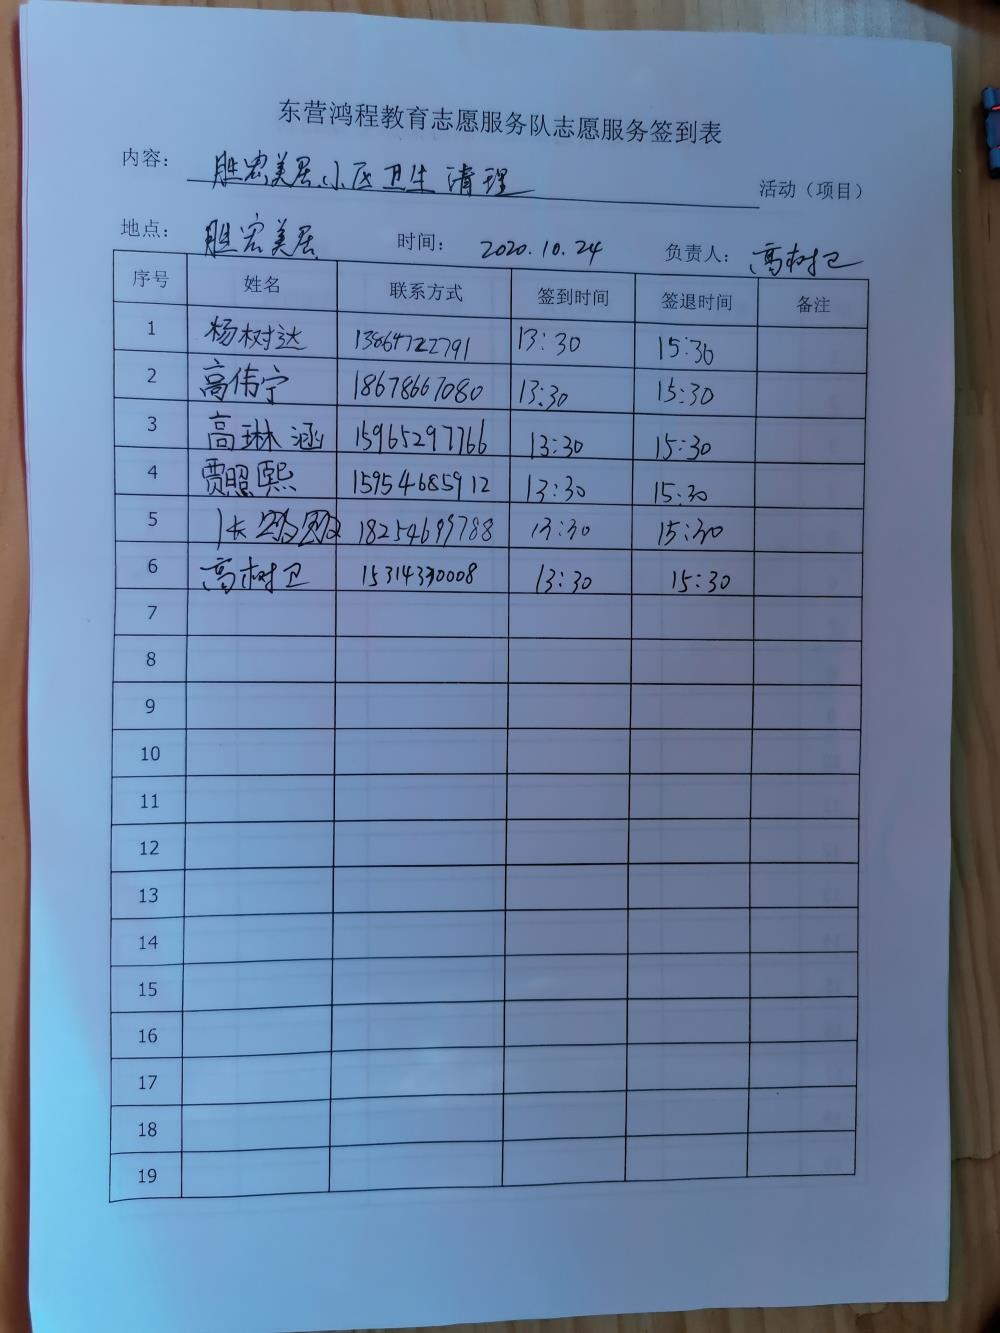 东营鸿程教育志愿服务队志愿服务签到表
内容： 胜宏美居小区卫生清理 活动（项目）
地点： 胜宏美居 时间： 2020.10.24 负责人： 高树卫
序号 姓名 联系方式 签到时间 签退时间 备注
1 杨树达 13864722791 13:30 15:30
2 高伟宁 18678667080 13:30 15:30
3 高琳涵 15965297766 13:30 15:30
4 贾照熙 15954685912 13:30 15:30
5 18254699788 13:30 15:30
6 高树卫 15314330008 13:30 15:30
7
8
9
10
11
12
13
14
15
16
17
18
19